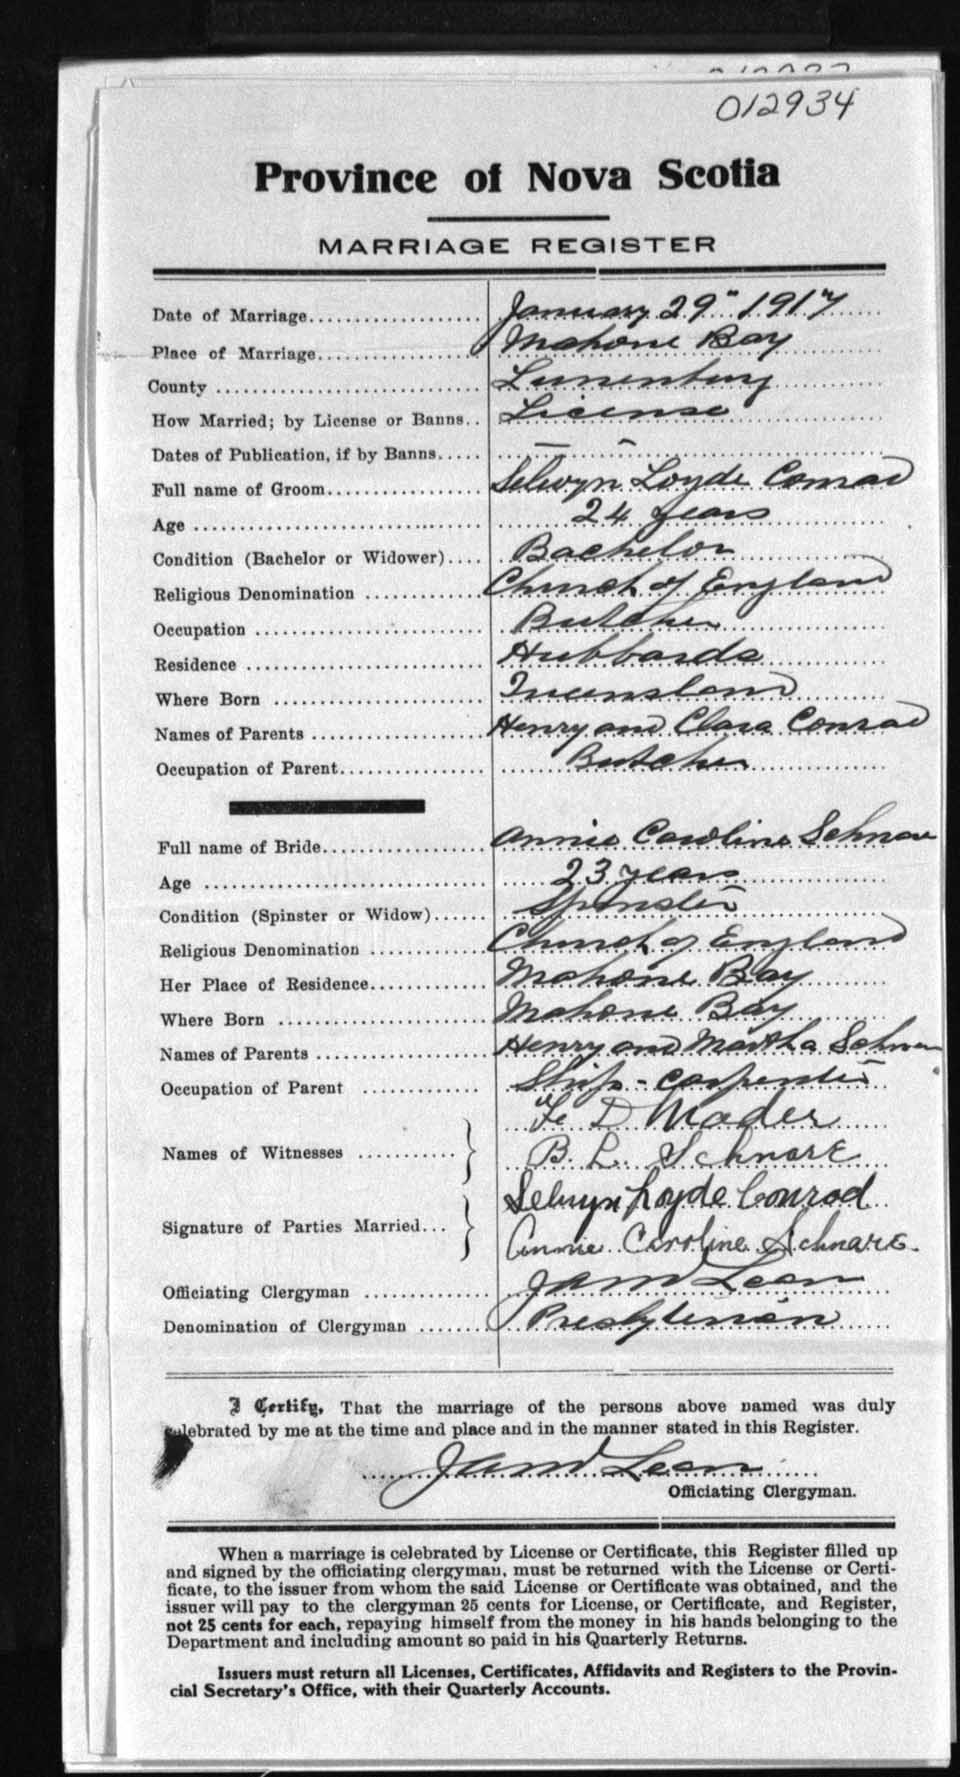 012934
Province of Nova Scotia
MARRIAGE REGISTER
Date of Marriage.................... January 29" 1917
Place of Marriage................... Mahone Bay
County ............................ Lunenburg
How Married; by License or Banns.. License
Dates of Publication, if by Banns..... — —
Full name of Groom................. Selwyn Loyde Conrad
Age ............................... 24 years
Condition (Bachelor or Widower).... Bachelor
Religious Denomination ............. Church of England
Occupation ......................... Butcher
Residence .......................... Hubbards
Where Born ........................ Queensland
Names of Parents ................... Henry and Clara Conrad
Occupation of Parent................ Butcher
Full name of Bride.................. Annie Caroline Schnare
Age ............................... 23 years
Condition (Spinster or Widow)...... Spinster
Religious Denomination ............. Church of England
Her Place of Residence............. Mahone Bay
Where Born ........................ Mahone Bay
Names of Parents ................... Henry and Martha Schnare
Occupation of Parent ............. Ship-carpenter
D Mader
Names of Witnesses ...........} B. L. Schnare
Selwyn Loyde Conrad
Signature of Parties Married...} Annie Caroline Schnare.
Officiating Clergyman ..............
Denomination of Clergyman ........ Presbyterian
I Certify, That the marriage of the persons above named was duly
celebrated by me at the time and place and in the manner stated in this Register.
Officiating Clergyman.
When a marriage is celebrated by License or Certificate, this Register filled up
and signed by the officiating clergyman, must be returned with the License or Certi-
ficate, to the issuer from whom the said License or Certificate was obtained, and the
issuer will pay to the clergyman 25 cents for License, or Certificate, and Register,
not 25 cents for each, repaying himself from the money in his hands belonging to the
Department and including amount so paid in his Quarterly Returns.
Issuers must return all Licenses, Certificates, Affidavits and Registers to the Provin-
cial Secretary's Office, with their Quarterly Accounts.